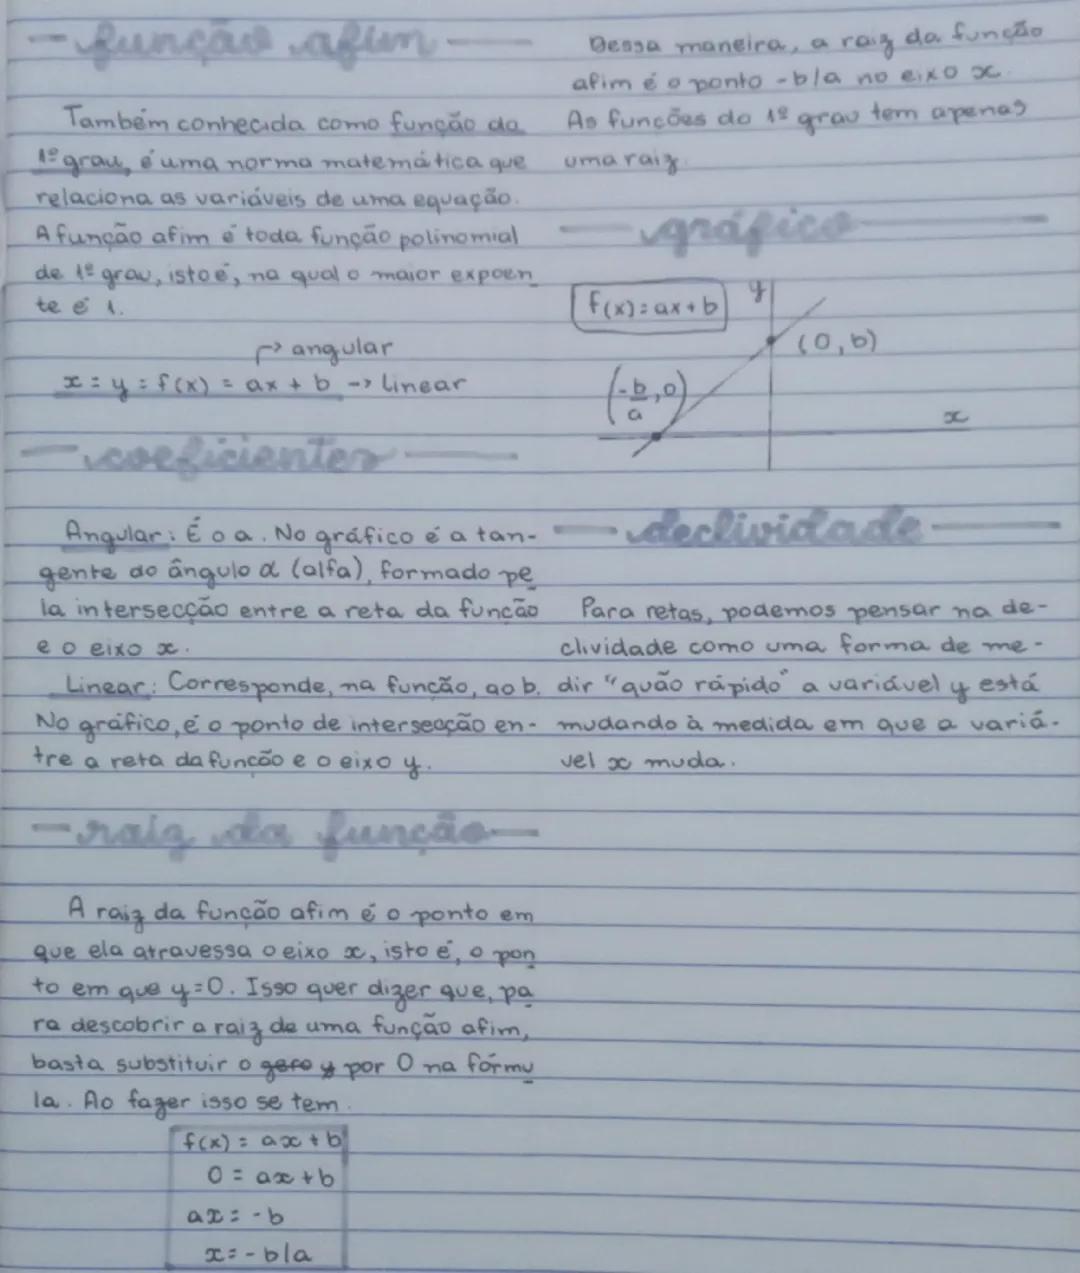 função afim
Também conhecida como função do
1º grau, é uma norma matemática que
relaciona as variáveis de uma equação.
A função afim é toda função polinomial
de 1º grau, isto é, na qual o maior expoen
te é 1.
→ angular
x = y = f(x) = ax + b -> linear
coeficientes
Angular: É o a. No gráfico é a tan-
gente do ângulo α (alfa), formado pe
la intersecção entre a reta da função
e o eixo x.
Linear: Corresponde, na função, ao b.
No gráfico, é o ponto de intersecção en-
tre a reta da função e o eixo y.
raiz da função
A raiz da função afim é o ponto em
que ela atravessa o eixo x, isto é, o pon
to em que y=0. Isso quer dizer que, pa
ra descobrir a raiz de uma função afim,
basta substituir o zero y por 0 na fórmu
la. Ao fazer isso se tem.
f(x) = ax + b
0 = ax + b
ax = -b
x = -b/a
Dessa maneira, a raiz da função
afim é o ponto -b/a no eixo x.
As funções do 1º grau tem apenas
uma raiz.
gráfico
f(x) = ax + b
y
(0, b)
(-b/a, 0)
x
declividade
Para retas, podemos pensar na de-
clividade como uma forma de me-
dir "quão rápido" a variável y está
mudando à medida em que a variá-
vel x muda.